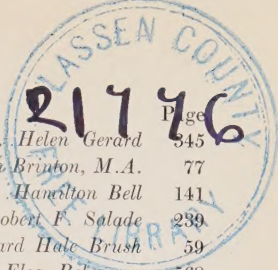 LASSEN COUNTY
21776
Page
Helen Gerard 345
Brinton, M.A. 77
Hamilton Bell 141
Robert F. Salade 239
ard Hale Brush 59
FREE LIBRARY